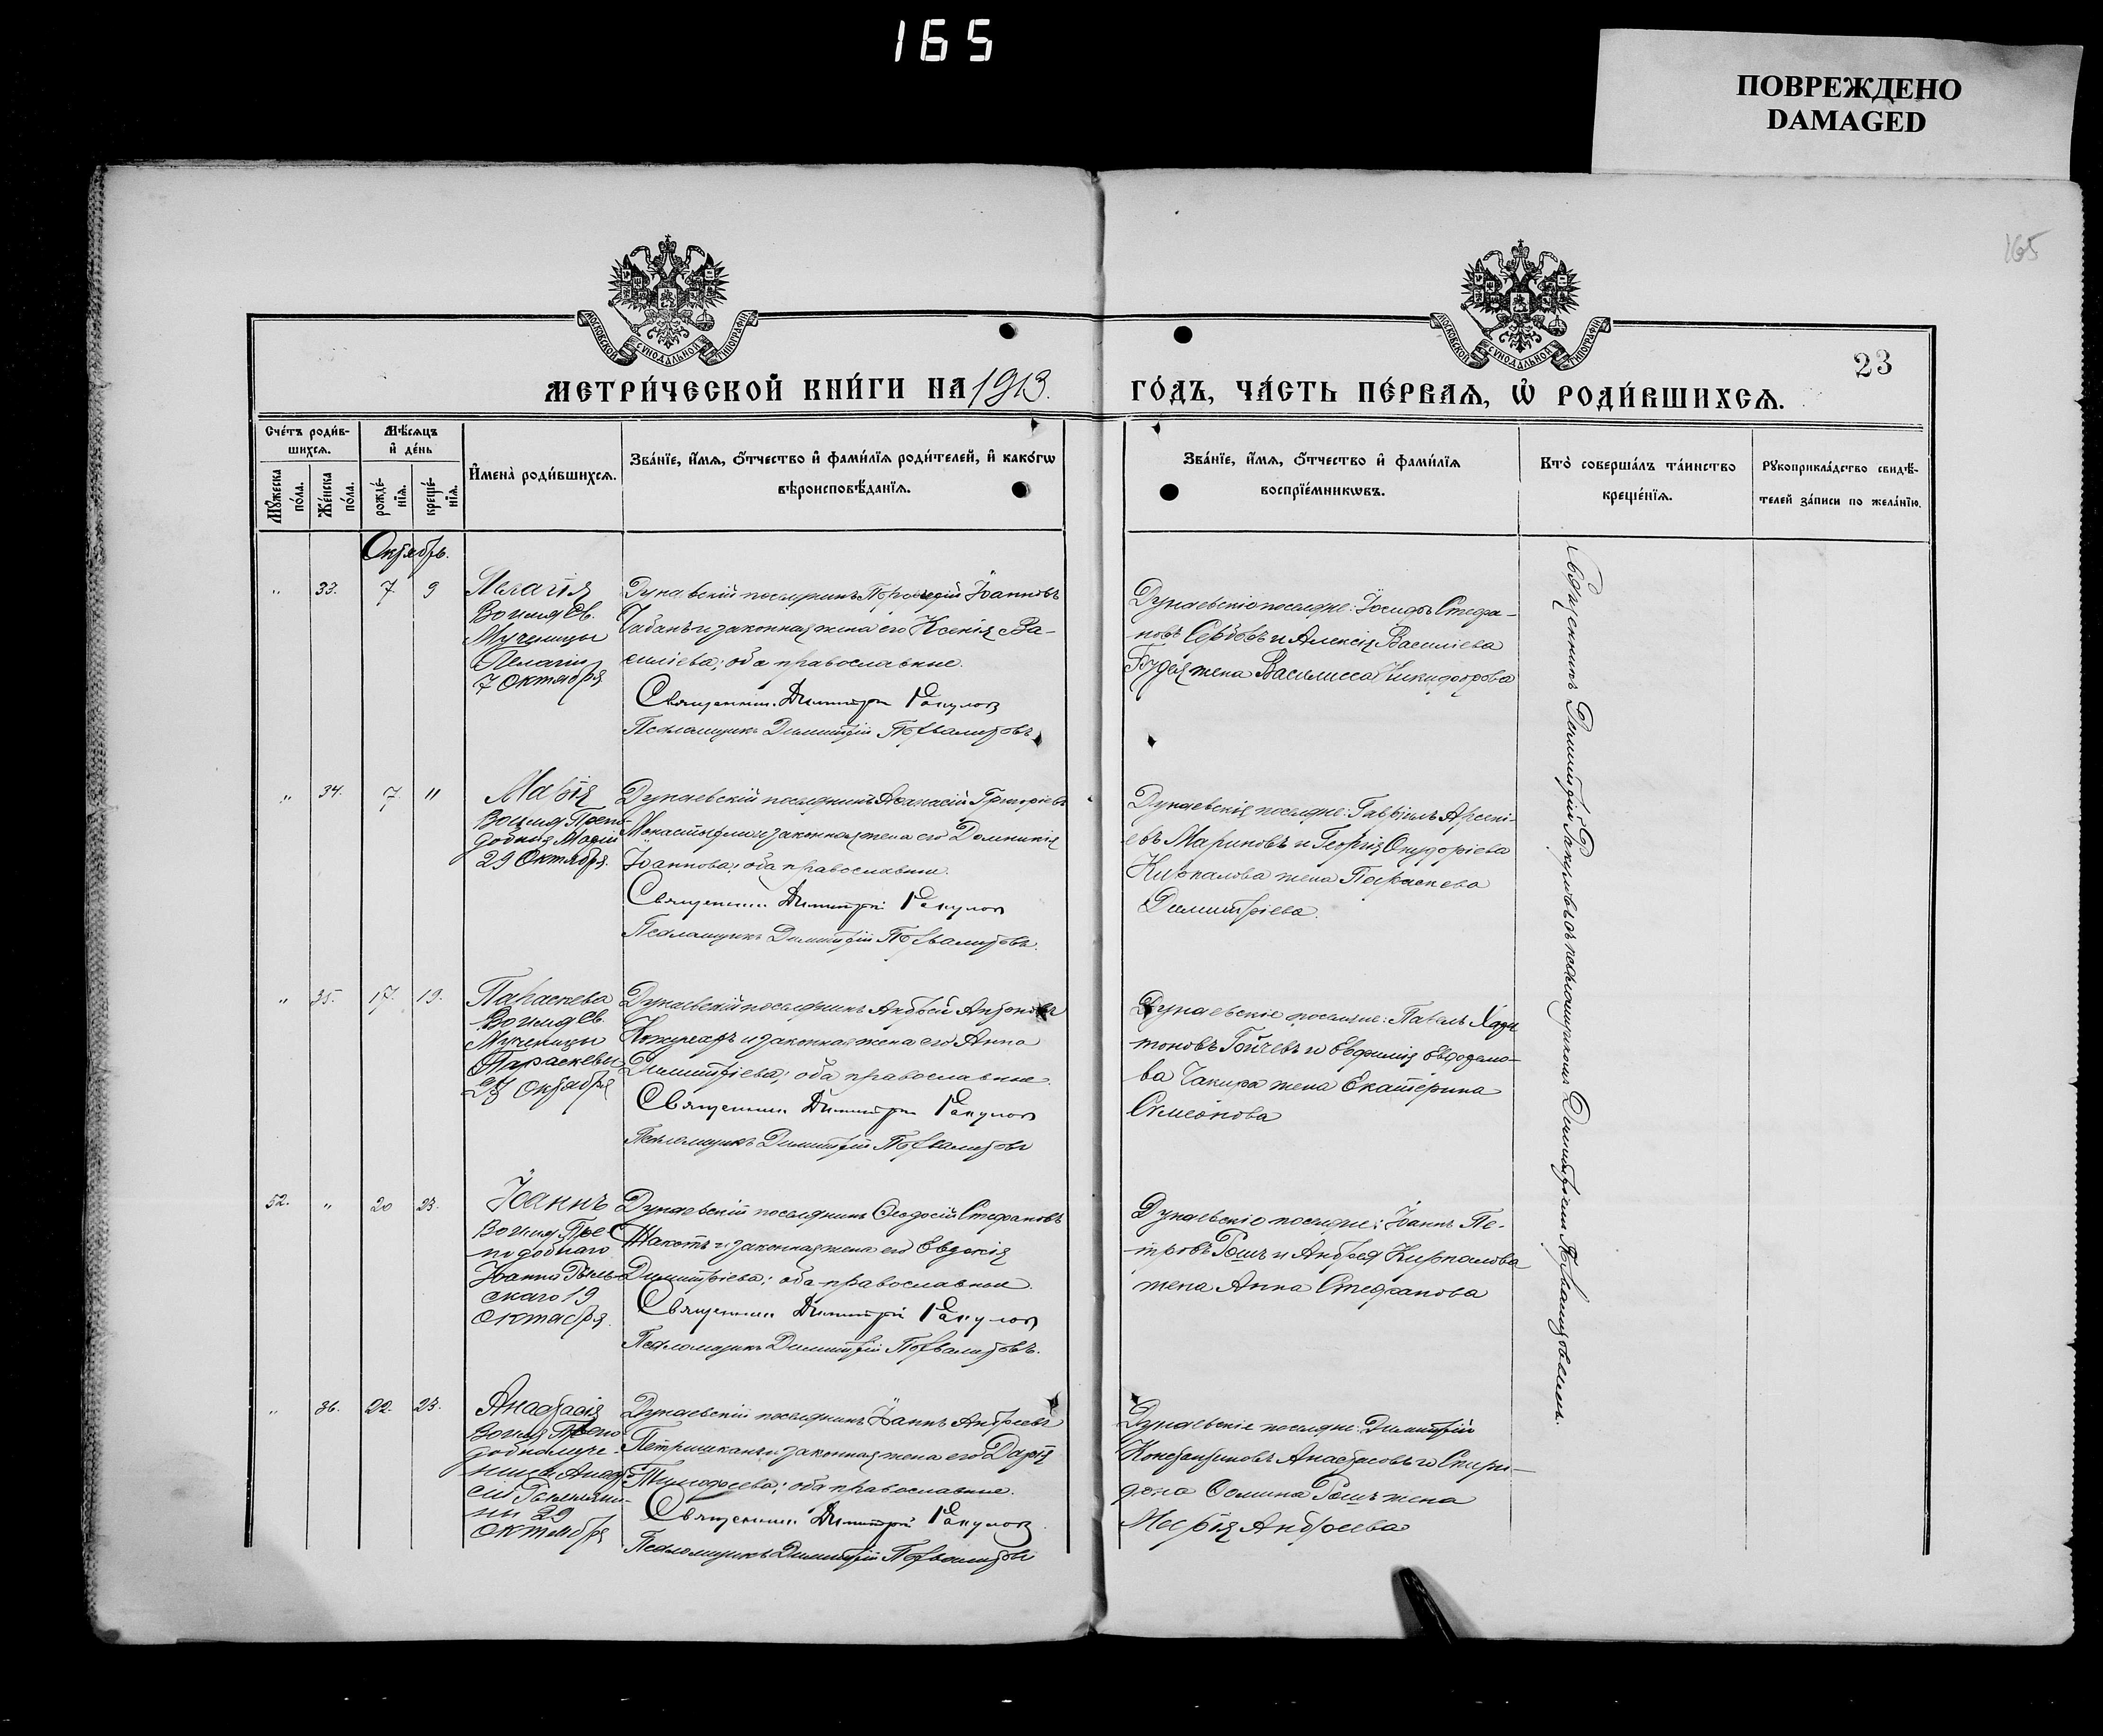 165
ПОВРЕЖДЕНО
DAMAGED
165
МОСКОВСКОЙ СУНОДАЛЬНОЙ ТИПОГРАФІИ
МОСКОВСКОЙ СУНОДАЛЬНОЙ ТИПОГРАФІИ
23
МЕТРИ́ЧЕСКОЙ КНИ́ГИ НА 1913. ГО́ДЪ, ЧА́СТЬ ПЕ́РВАѦ, Ѡ҆ РОДИ́ВШИХСѦ.
Сче́тъ роди́в-
шихсѧ.
Мꙋ́жеска
по́ла.
Же́нска
по́ла.
Мѣ́сѧцъ
и҆ де́нь
рожде́-
нїѧ.
креще́-
нїѧ.
И҆мена̀ роди́вшихсѧ.
Зва́нїе, и҆́мѧ, ѻ҆́тчество и҆ фами́лїѧ роди́телей, и҆ како́гѡ
вѣроисповѣ́данїѧ.
Зва́нїе, и҆́мѧ, ѻ҆́тчество и҆ фами́лїѧ
воспрїе́мникѡвъ.
Кто̀ соверша́лъ та́инство
креще́нїѧ.
Рꙋкоприкла́дство свидѣ́-
телей за́писи по жела́нїю.
Октябрь.
„ 33. 7. 9
Пелагія
Во имя св.
Мученицы
Пелагіи
7 Октября
Дунаевскій поселянинъ Іоанновъ
Чабанъ и законная жена его Ксенія Ва-
силіева; оба православные.
Священникъ Димитрій Ракулов
Псаломщикъ Димитрій
Дунаевскіе поселяне: Іосифъ Стефа-
новъ Сербовъ и Алексія Василіева
жена Василисса Никифорова
„ 34. 7. 11
Марія
Во имя Препо-
добныя Маріи
29 Октября.
Дунаевскій поселянинъ Аѳанасій Григоріевъ
и законная жена его Домникія
Іоаннова; оба православные.
Священникъ Димитрій Ракулов
Псаломщикъ Димитрій
Дунаевскіе поселяне: Гавріилъ Арсені-
евъ Мариновъ и Георгія
Киркалова жена Параскева
Димитріева.
„ 35. 17. 19.
Параскева
Во имя св.
Мученицы
Параскевы
Октября
Дунаевскій поселянинъ Андрей Антоновъ
Кожухарь и законная жена его Анна
Димитріева; оба православные.
Священникъ Димитрій Ракулов
Псаломщикъ Димитрій
Дунаевскіе поселяне: Павелъ Хари
тоновъ Гойчевъ и Евфимія
ва Чакира жена Екатерина
Симеонова
52. „ 20 23.
Іоаннъ
Во имя Пре
подобнаго
Іоанна Рыль
скаго 19
Октября.
Дунаевскій поселянинъ Ѳеодосій Стефановъ
и законная жена его Евдокія
Димитріева; оба православные.
Священникъ Димитрій Ракулов
Псаломщикъ Димитрій
Дунаевскіе поселяне: Іоаннъ Пе-
тровъ Рошъ и Андрея Киркалова
жена Анна Стефанова
„ 36. 22. 23.
Анастасія
Во имя Препо
добномуче-
ницы Анаст
29
Октября
Дунаевскій поселянинъ Іоаннъ Андреевъ
и законная жена его Дарія
Тимоѳеева; оба православные.
Священникъ Димитрій Ракулов
Псаломщикъ Димитрій
Дунаевскіе поселяне: Димитрій
Константиновъ Анастасовъ и Спири-
дона Рошъ жена
Марія Андреева
Священникъ Димитрій Ракуловъ съ псаломщикомъ Димитріемъ